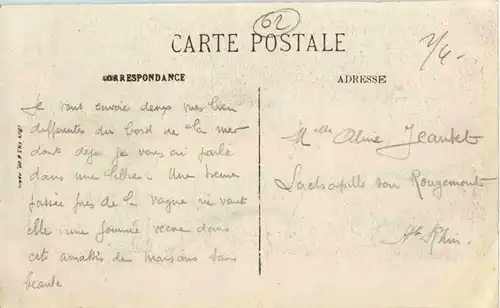 62
CARTE POSTALE
2/4.
CORRESPONDANCE
ADRESSE
Je vous envoie deux vues bien
differentes du bord de la mer
dont deja je vous ai parlé
dans une lettre. Une heure
passée près de la vague ne vaut
elle une journée vécue dans
cet amattis de maisons sans
beauté
Melle Aline Jeantet
Lachapelle sous Rougemont
Ht Rhin.